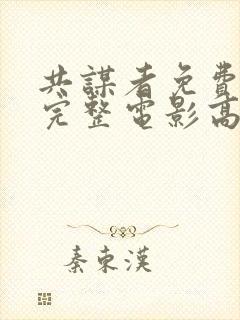 共謀者免費
完整電影高
秦東漢